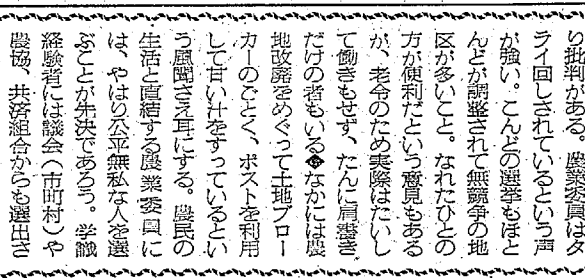 り批判がある。農業委員はタ
ライ回しされているという声
が強い。こんどの選挙もほと
んどが調整されて無競争の地
区が多いこと。なれたひとの
方が便利だという意見もある
が、老令のため実際はたいし
て働きもせず、たんに肩書き
だけの者もいる◆なかには農
地改廃をめぐって土地ブロー
カーのごとく、ポストを利用
して甘い汁をすっているとい
う風聞さえ耳にする。農民の
生活と直結する農業委員に
は、やはり公平無私な人を選
ぶことが先決であろう。学識
経験者には議会（市町村）や
農協、共済組合からも選出さ